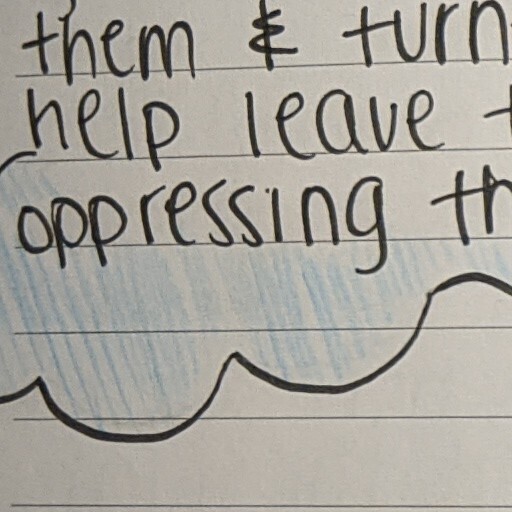 them & turn
help leave
oppressing th